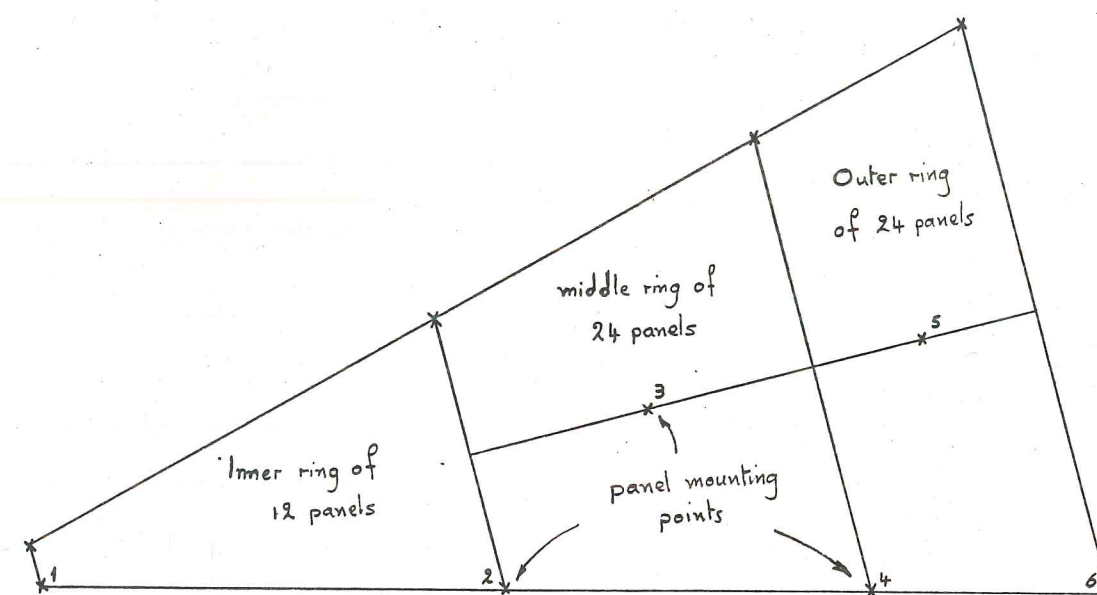 Outer ring
of 24 panels
middle ring of
24 panels
5
3
Inner ring of
12 panels
panel mounting
points
1
2
4
6